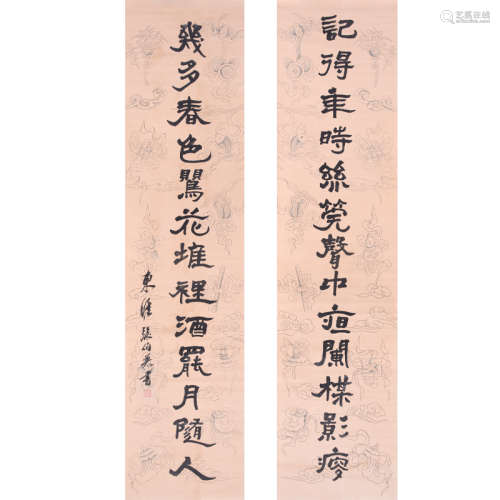 記得年時絲筦聲中夜闌棋影瘦
幾多春色鶯花堆裡酒罷月隨人
張伯英書